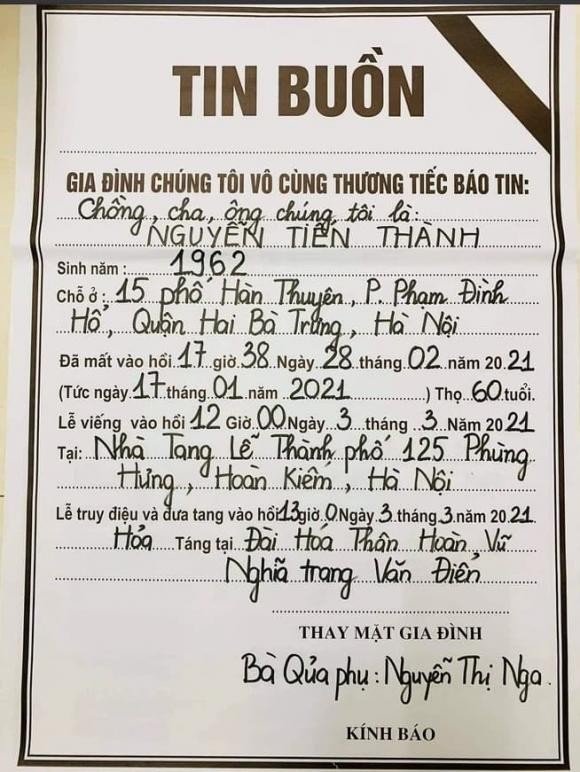 TIN BUỒN
GIA ĐÌNH CHÚNG TÔI VÔ CÙNG THƯƠNG TIẾC BÁO TIN:
Chồng, cha, ông chúng tôi là:
NGUYỄN TIẾN THÀNH
Sinh năm: 1962
Chỗ ở: 15 phố Hàn Thuyên, P. Phạm Đình
Hổ, Quận Hai Bà Trưng, Hà Nội
Đã mất vào hồi 17 giờ 38 Ngày 28 tháng 02 năm 2021
(Tức ngày 17 tháng 01 năm 2021 ) Thọ 60 tuổi.
Lễ viếng vào hồi 12 Giờ 00 Ngày 3 tháng 3 Năm 2021
Tại: Nhà Tang Lễ Thành phố 125 Phùng
Hưng, Hoàn Kiếm, Hà Nội
Lễ truy điệu và đưa tang vào hồi 13 giờ 0 Ngày 3 tháng 3 năm 2021
Hỏa Táng tại Đài Hoá Thân Hoàn Vũ
Nghĩa trang Văn Điển
THAY MẶT GIA ĐÌNH
Bà Qủa phụ: Nguyễn Thị Nga.
KÍNH BÁO